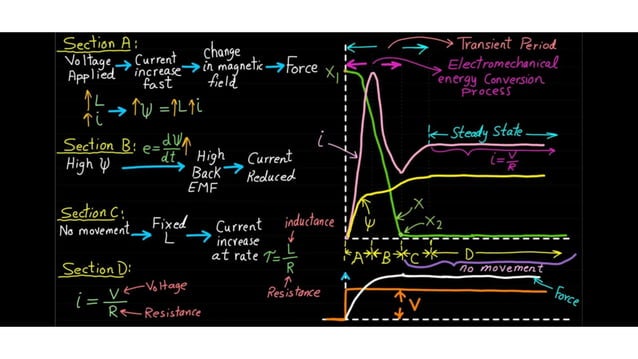 Section A:
Voltage Applied → Current increase fast → change in magnetic field → Force
↑L
↑i → ↑Ψ = ↑L↑i
Section B: e = dΨ/dt ↑
High Ψ → High Back EMF → Current Reduced
Section C:
No movement → Fixed L → Current increase at rate τ = L/R
inductance
Resistance
Section D:
i = V/R
Voltage
Resistance
Transient Period
Electromechanical
energy Conversion
Process
X₁
i
Steady State
i = V/R
X
X₂
Ψ
A B C D
no movement
Force
V